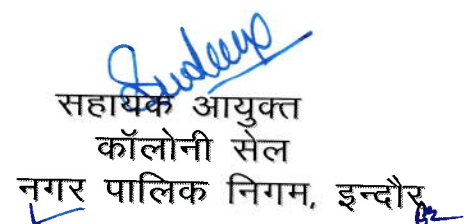 सहायक आयुक्त
कॉलोनी सेल
नगर पालिक निगम, इन्दौर